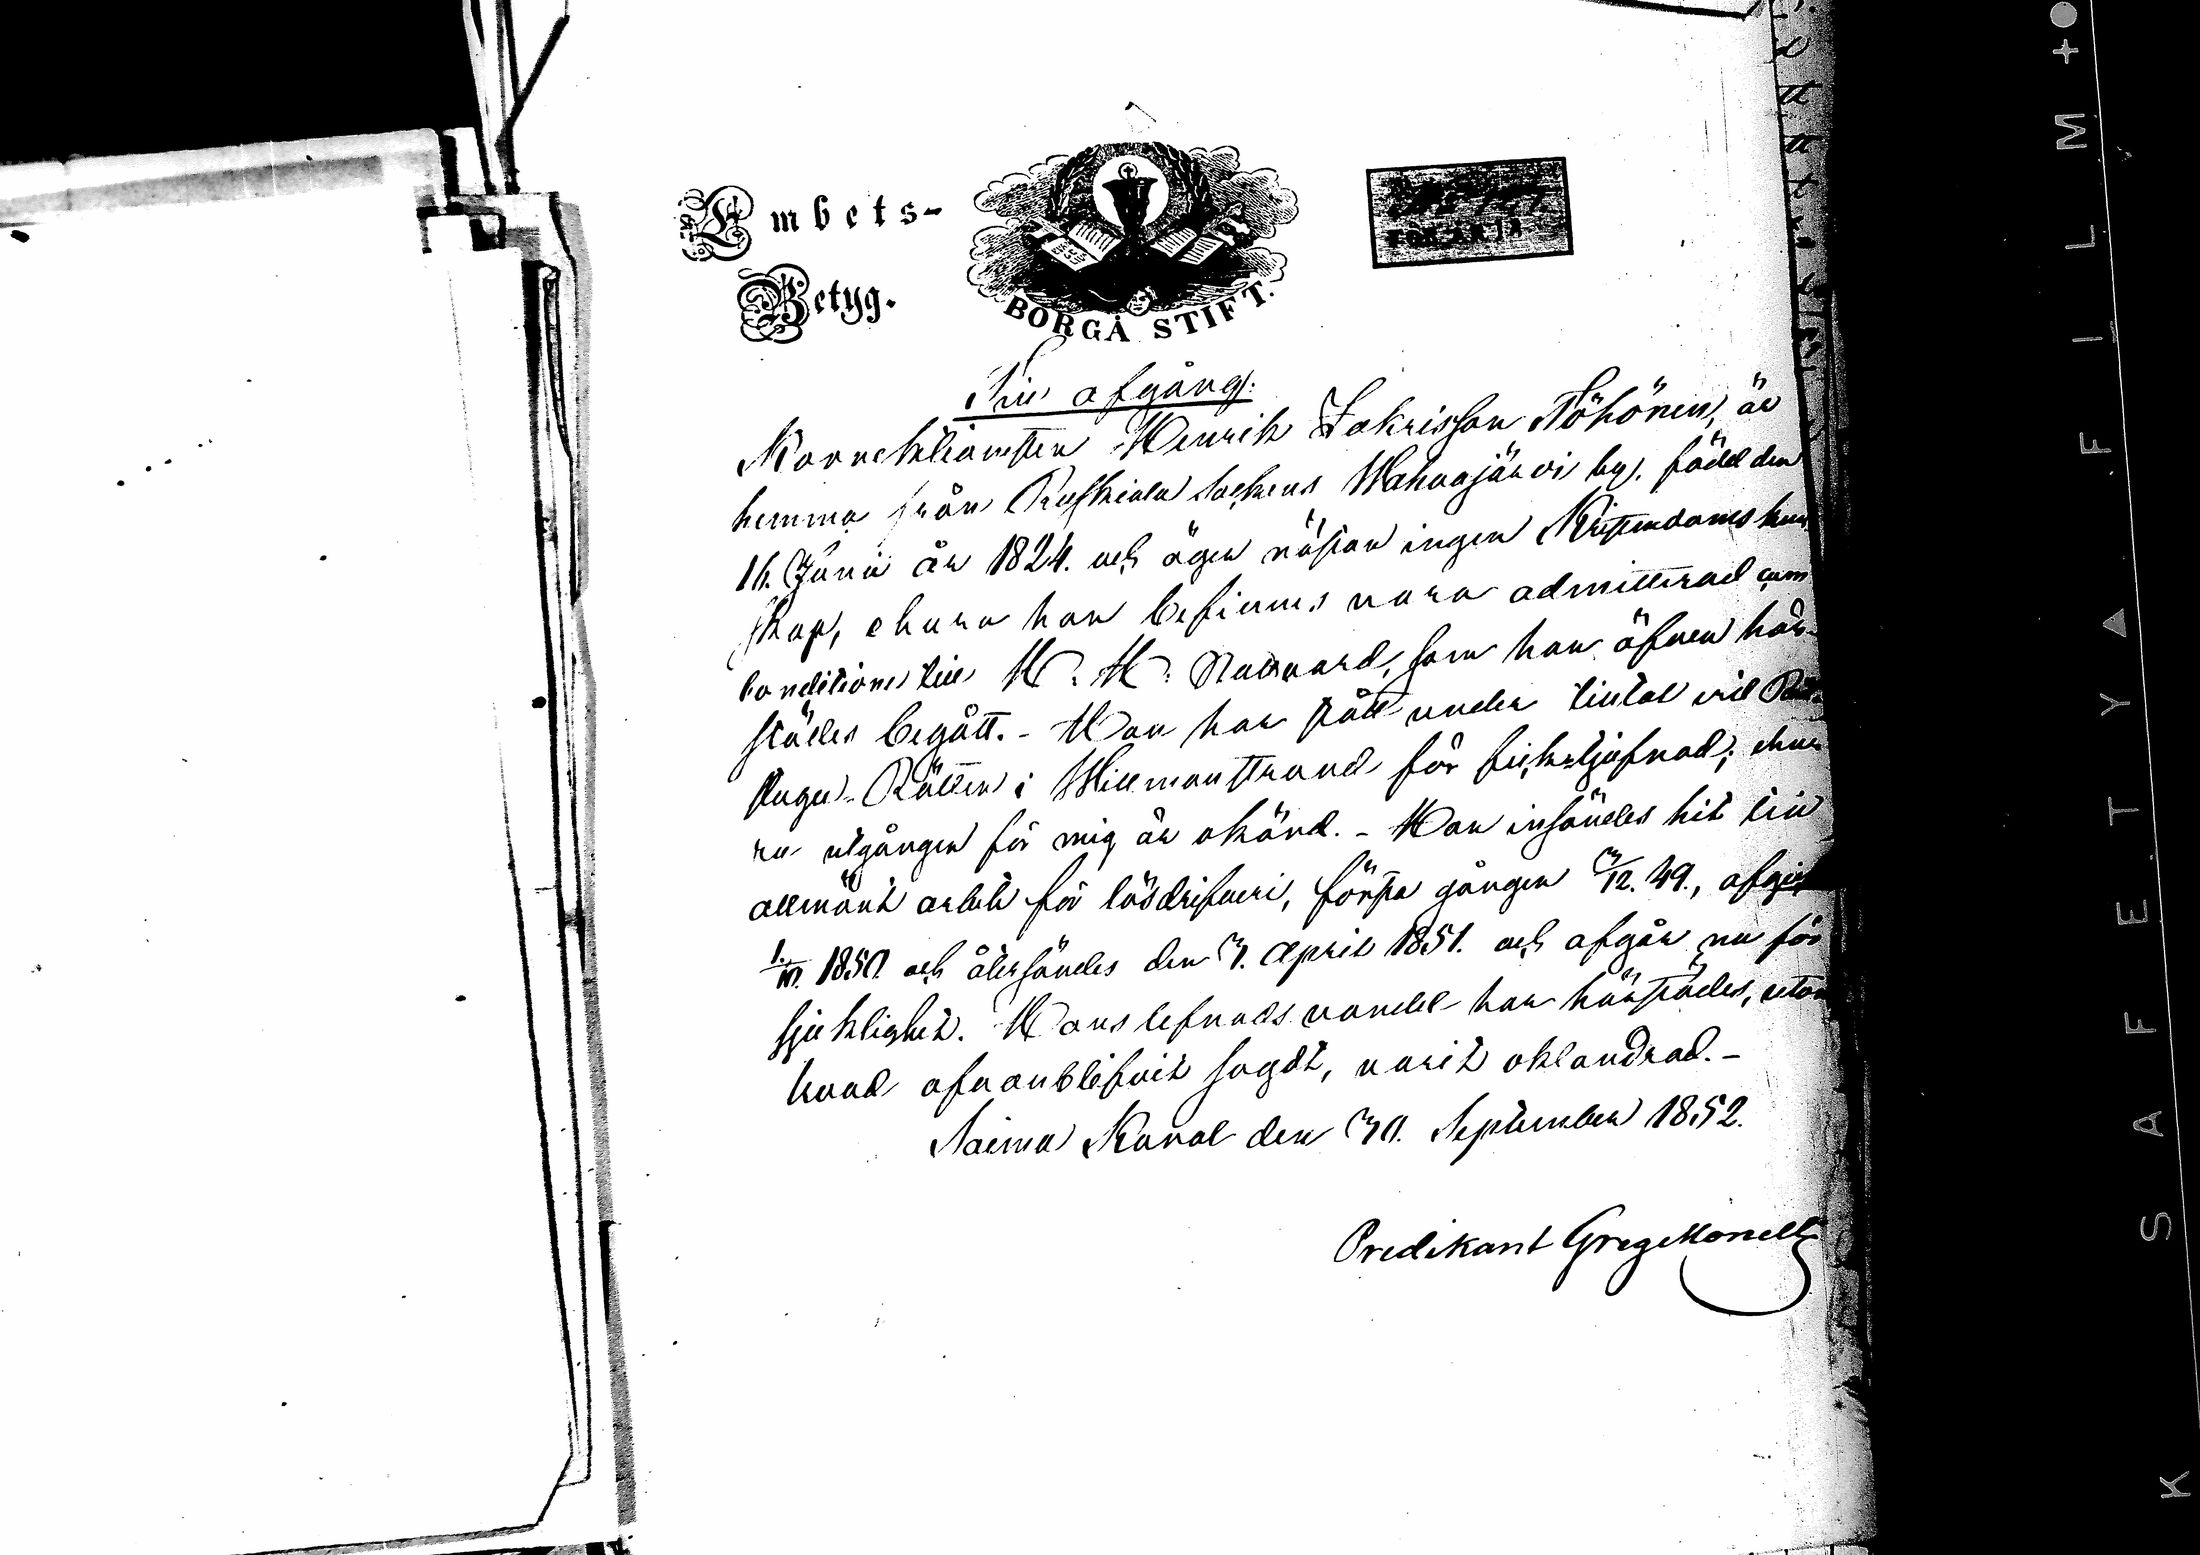 Embets-
Betyg.
BORGÅ STIFT.
Till afgång:
Henrik Zakrisson Töhönen, är
hemma från Ruskiala Sockens Wahvajärvi by, född den
16. Junii år 1824. och äger nästan ingen Kristendoms kun
skap, ehuru han befinnes vara admitterad cum
conditione till H. H. Nattvard, som han äfven här-
städes begått. - Han har stått under tiltal vid
Rätten i Willmanstrand för fickstjufnad, ehu
ru utgången för mig är okänd. - Han insändes hit till
allmänt arbete för lösdrifveri, första gången /12. 49., afgick
1850 och återsändes den 3. April 1851. och afgår nu för
sjuklighet. Hans lefnads vandel har härstädes, utom
hvad ofvanblifvit sagdt, varit oklandrad. -
Saima Kanal den 30. September 1852.
Predikant Greg.
K S A F E T Y ▲ F I L M +●